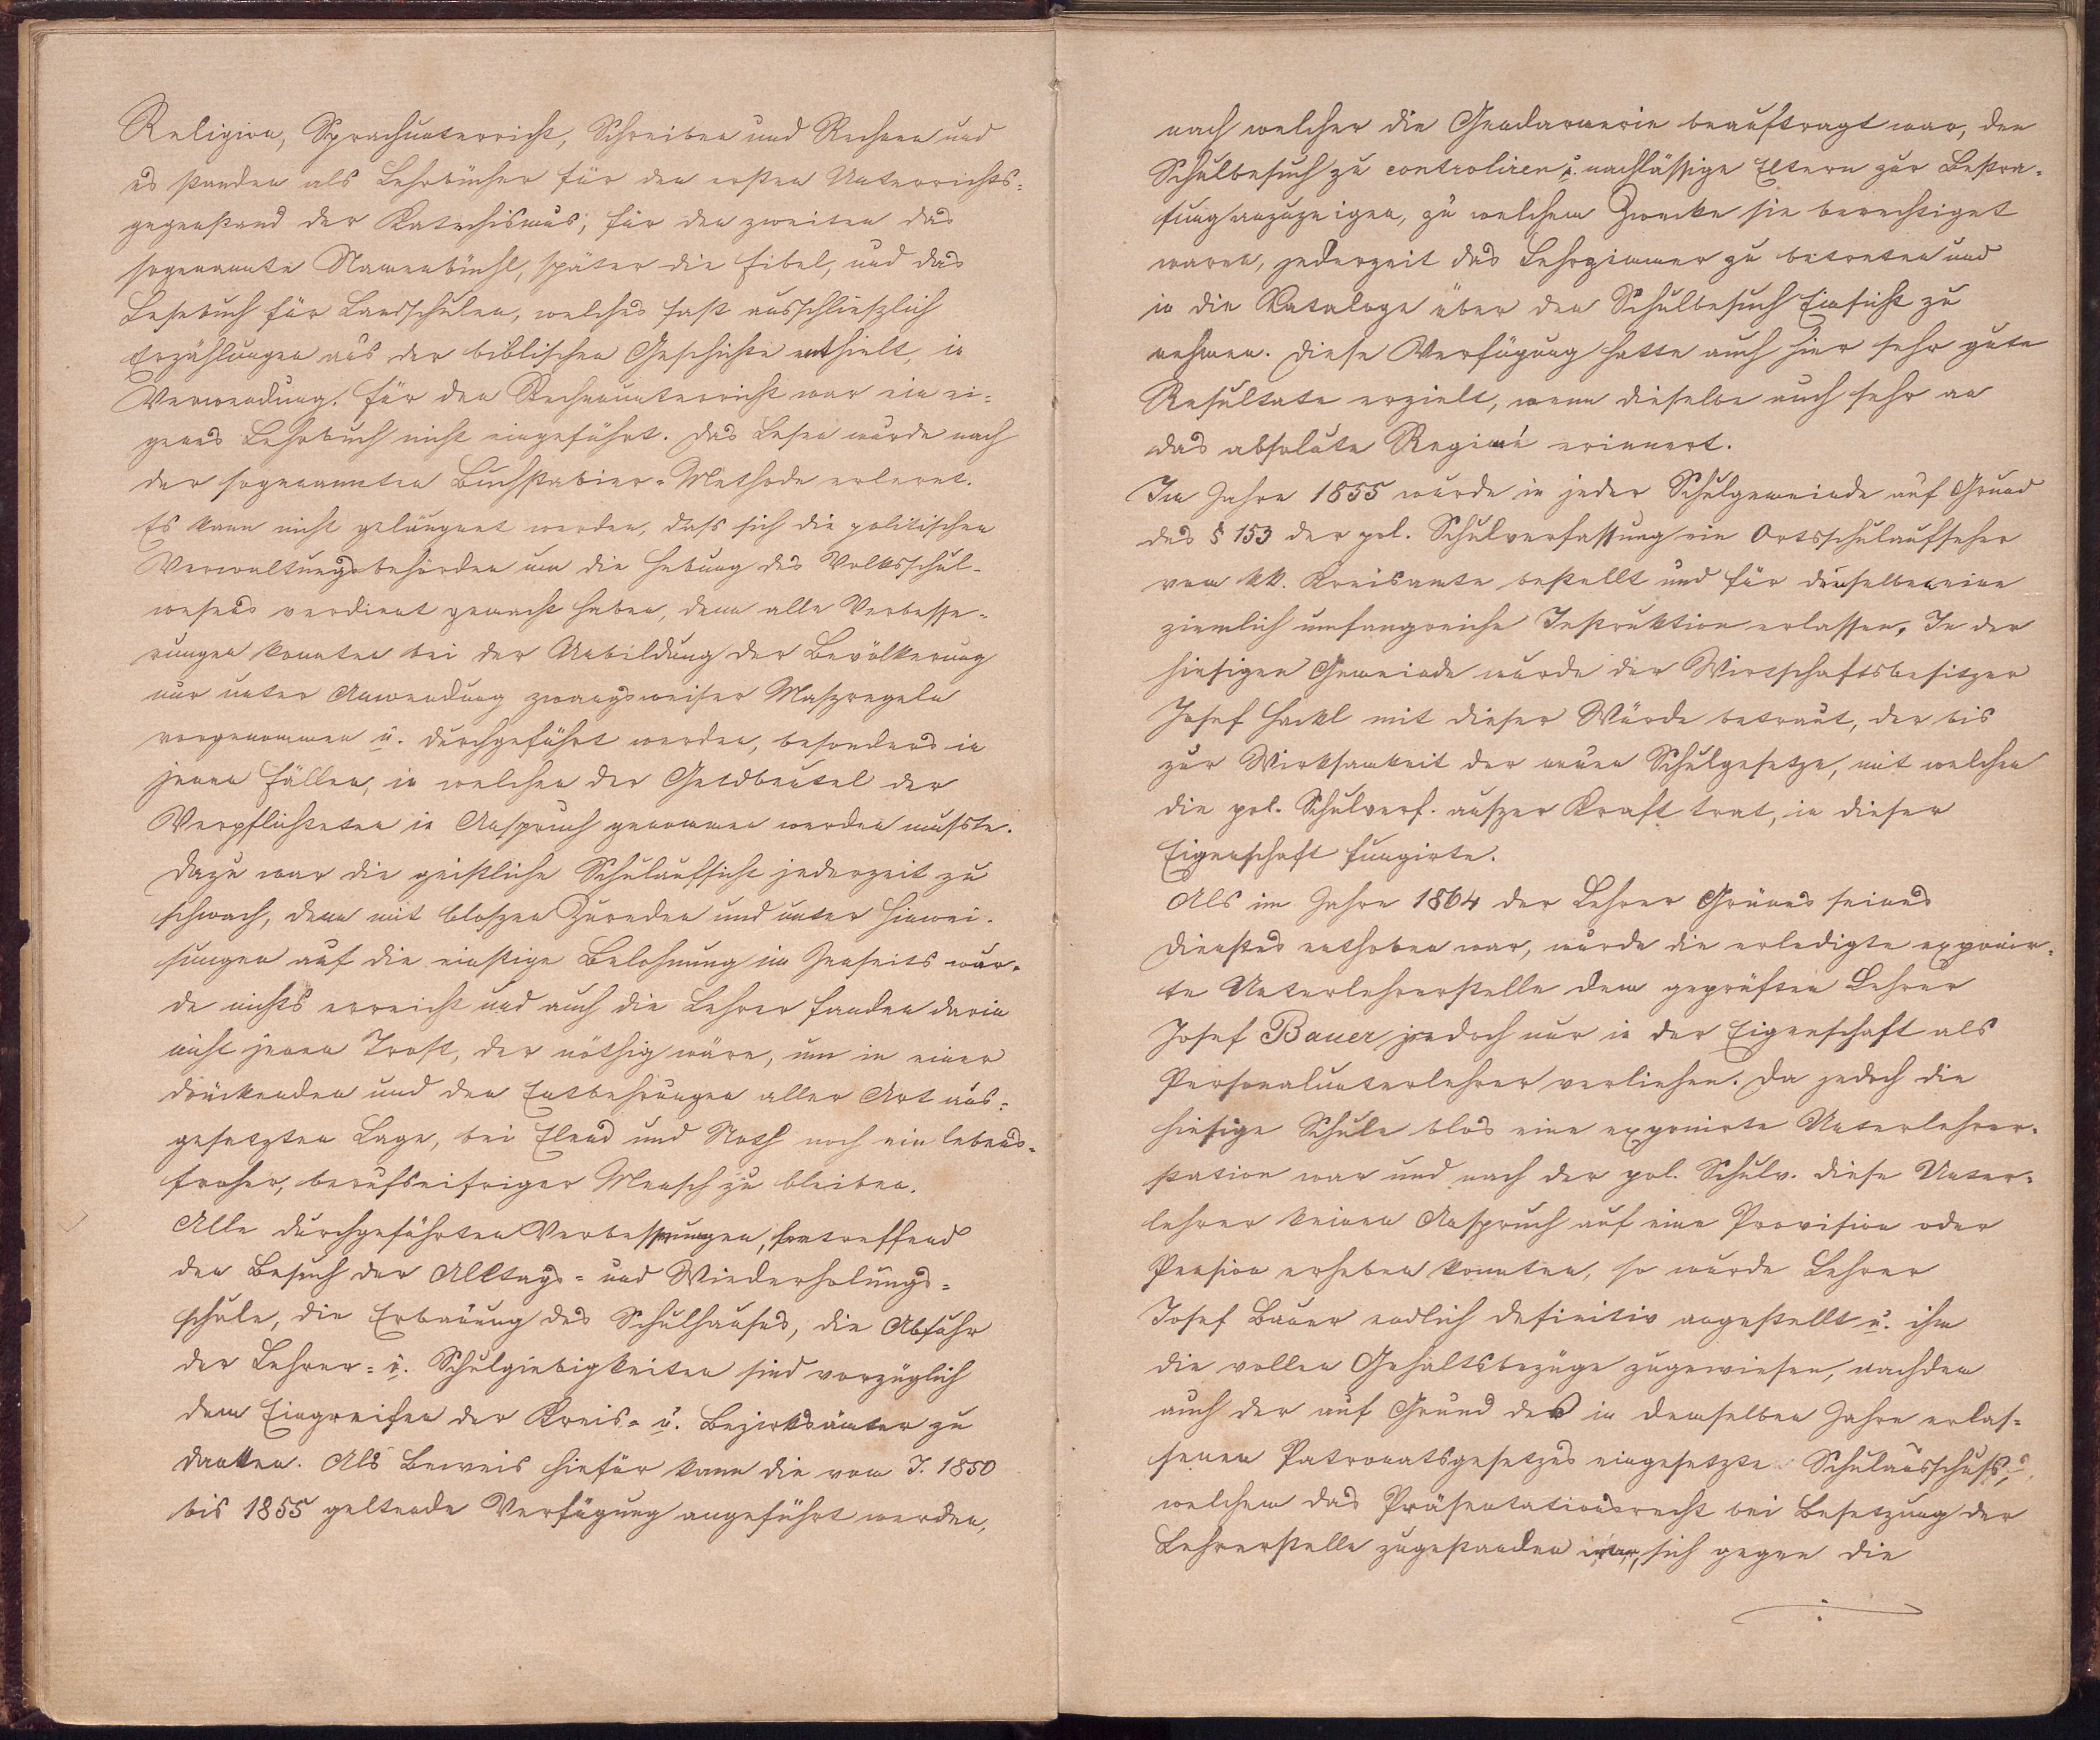 Religion, Sprachunterricht, Schreiben und Rechnen und
es standen als Lehrbücher für den ersten Unterrichts-
gegenstand der Katechismus, für den zweiten das
sogenannte Namenbüchl, später die Fibel, und das
Lesebuch für Landschulen, welches fast ausschließlich
Erzählungen aus der biblischen Geschichte enthielt, in
Verwendung. Für den Rechenunterricht war ein ei-
genes Lehrbuch nicht eingeführt. Das Lesen wurde nach
der sogenannten Buchstabier-Methode erlernt.
Es kann nicht geläugnet werden, dass sich die politischen
Verwaltungsbehörden um die Hebung des Volksschul-
wesens verdient gemacht haben, denn alle Verbesse-
rungen konnten bei der Unbildung der Bevölkerung
nur unter Anwendung zwangsweiser Maszregeln
vorgenommen u. durchgeführt werden, besonders in
jenen Fällen, in welchen der Geldbeutel der
Verpflichteten in Anspruch genommen werden musste.
Dazu war die geistliche Schulaufsicht jederzeit zu
schwach, denn mit bloszen Zureden und unter Hinwei-
sungen auf die einstige Belohnung im Jenseits wur-
de nichts erreicht und auch die Lehrer fanden darin
nicht jenen Trost, der nöthig wäre, um in einer
drückenden und den Entbehrungen aller Art aus-
gesetzten Lage, bei Elend und Noth noch ein lebens-
froher, berufseifriger Mensch zu bleiben.
Alle durchgeführten Verbesserungen, betreffend
den Besuch der Alltags- und Wiederholungs-
schule, die Erbauung des Schulhauses, die Abfuhr
der Lehrer- u. Schulgiebigkeiten sind vorzüglich
dem Eingreifen der Kreis- u. Bezirksämter zu
danken. Als Beweis hiefür kann die vom J. 1850
bis 1855 geltende Verfügung angeführt werden,
nach welcher die Gendarmerie beauftragt war, den
Schulbesuch zu controliren u. nachlässige Eltern zur Bestra-
fung anzuzeigen, zu welchem Zwecke sie berechtiget
waren, jederzeit das Lehrzimmer zu betreten und
in die Kataloge über den Schulbesuch Einsicht zu
nehmen. Diese Verfügung hatte auch hier sehr gute
Resultate erzielt, wenn dieselbe auch sehr an
das absolute Regimé erinnert.
Im Jahre 1855 wurde in jeder Schulgemeinde auf Grund
des § 153 der pol. Schulverfassung ein Ortsschulaufseher
vom kk. Kreisamte bestellt und für denselben eine
ziemlich umfangreiche Instruktion erlassen. In der
hiesigen Gemeinde wurde der Wirtschaftsbesitzer
Josef Hackl mit dieser Würde betraut, der bis
zur Wirksamkeit der neuen Schulgesetze, mit welchen
die pol. Schulverf. auszer Kraft trat, in dieser
Eigenschaft fungirte.
Als im Jahre 1864 der Lehrer Grünes seines
Dienstes enthoben war, wurde die erledigte exponir-
te Unterlehrerstelle dem geprüften Lehrer
Josef Bauer jedoch nur in der Eigenschaft als
Personalunterlehrer verliehen. Da jedoch die
hiesige Schule blos eine exponirte Unterlehrer-
station war und nach der pol. Schulv. diese Unter-
lehrer keinen Anspruch auf eine Provision oder
Pension erheben konnten, so wurde Lehrer
Josef Bauer endlich definitiv angestellt u. ihm
die vollen Gehaltsbezüge zugewiesen, nachdem
auch der auf Grund des in demselben Jahre erlas-
senen Patronatsgesetzes eingesetzte Schulausschuss,
welchem das Präsentationsrecht bei Besetzung der
Lehrerstelle zugestanden war, sich gegen die